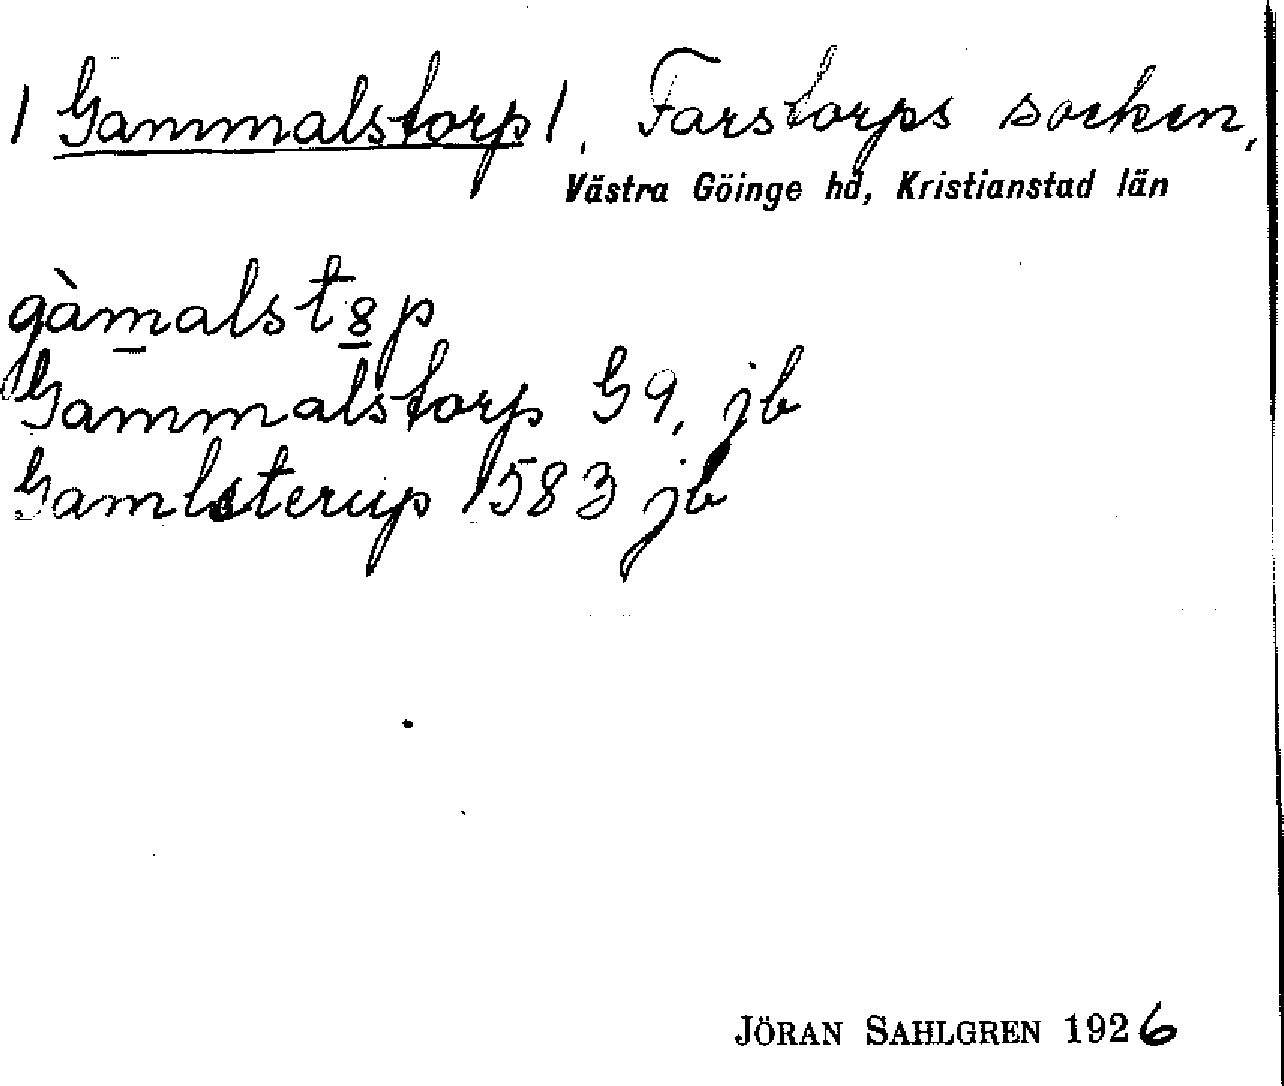 / Gammalstorp /. Farstorps socken,
Västra Göinge hd, Kristianstad län
gàmalst8p
Gammalstorp G9, jb
Gamlsterup 1583 jb
JÖRAN SAHLGREN 1926